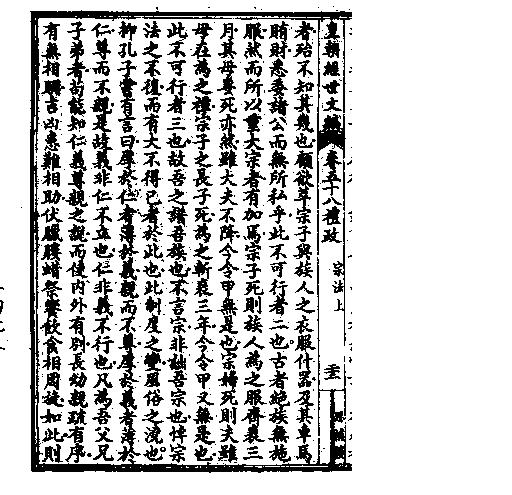 皇朝經世文編 卷五十八禮政 宗法上
者殆不知其幾也顧欲萃宗子與族人之衣服什器及其車馬
賄財悉委諸公而無所私乎此不可行者二也古者絕族無施
服然而所以重大宗者有加焉宗子死則族人為之服齊衰三
月其母妻死亦然雖大夫不降今令甲無是也宗婦死則夫雖
母在為之禫宗子之長子死為之斬衰三年今令甲又無是也
此不可行者三也故吾之譜吾族也不言宗非絀吾宗也悼宗
法之不復而有大不得已者於此也此制度之變風俗之洿也
抑孔子嘗有言曰厚於仁者薄於義親而不尊厚於義者薄於
仁尊而不親是故義非仁不立也仁非義不行也凡為吾父兄
子弟者苟能知仁義尊親之說而使內外有別長幼親疏有序
有無相賙吉凶患難相助伏臘腰蜡祭饗飲食相周旋如此則